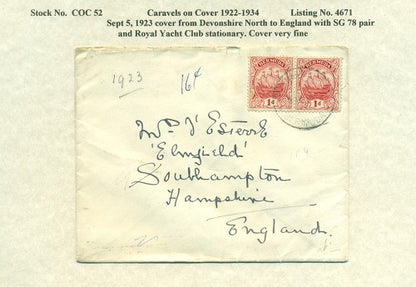 Stock No. COC 52 Caravels on Cover 1922-1934 Listing No. 4671
Sept 5, 1923 cover from Devonshire North to England with SG 78 pair
and Royal Yacht Club stationary. Cover very fine
1923
16¢
BERMUDA BERMUDA
1d 1d
Mrs D'Esterre
'Elmfield'
Southampton
Hampshire
England